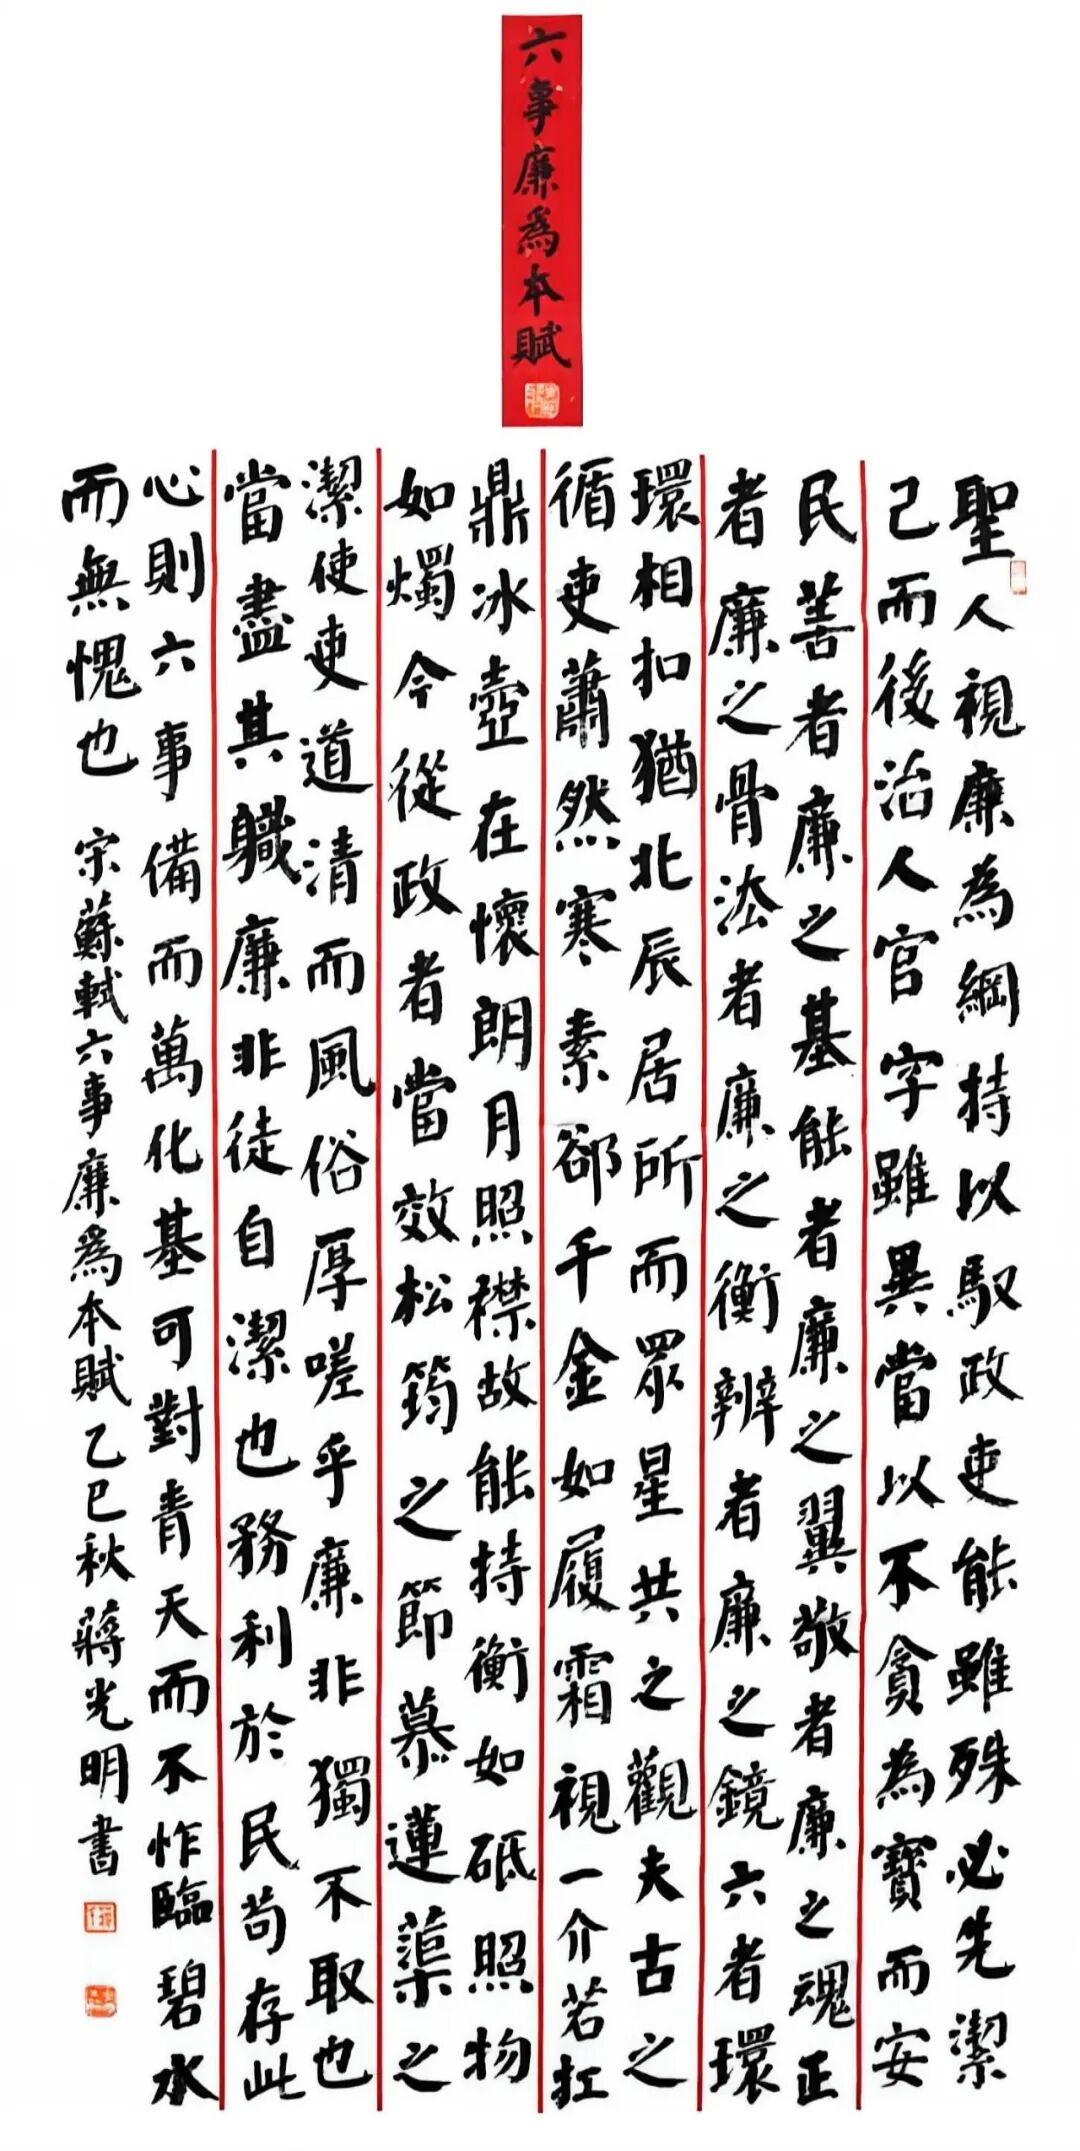 六事廉爲本賦
聖人視廉為綱持以馭政吏能雖殊必先潔
己而後治人官字雖異當以不貪為寶而安
民善者廉之基能者廉之翼敬者廉之魂正
者廉之骨法者廉之衡辨者廉之鏡六者環
環相扣猶北辰居所而眾星共之觀夫古之
循吏蕭然寒素郤千金如履霜視一介若扛
鼎冰壺在懷朗月照襟故能持衡如砥照物
如燭今從政者當效松筠之節慕蓮蕖之
潔使吏道清而風俗厚嗟乎廉非獨不取也
當盡其職廉非徒自潔也務利於民苟存此
心則六事備而萬化基可對青天而不怍臨碧水
而無愧也 宋蘇軾六事廉爲本賦乙巳秋蔣光明書